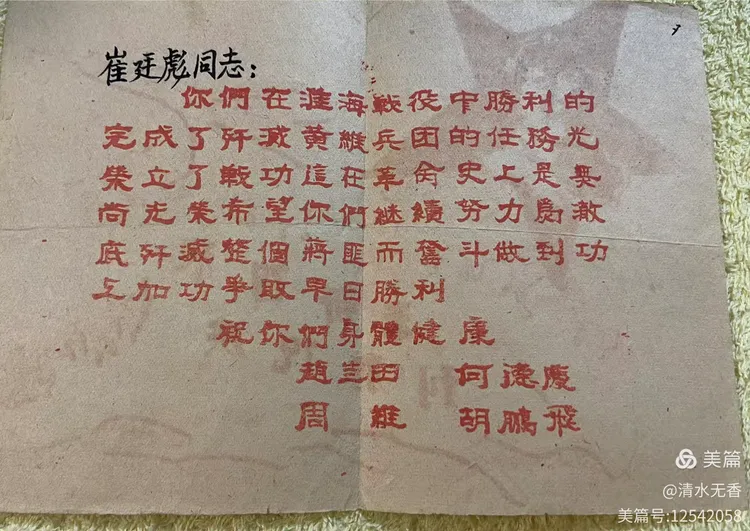 崔廷彪同志：
你們在淮海戰役中勝利的
完成了歼滅黄維兵团的任務光
榮立了戰功這在革命史上是無
尚光荣希望你們継續努力為澈
底歼滅整個蔣匪而奮斗做到功
上加功爭取早日勝利
祝你們身體健康
趙兰田 何德慶
周維 胡鵬飛
美篇
@清水无香
美篇号:12542058